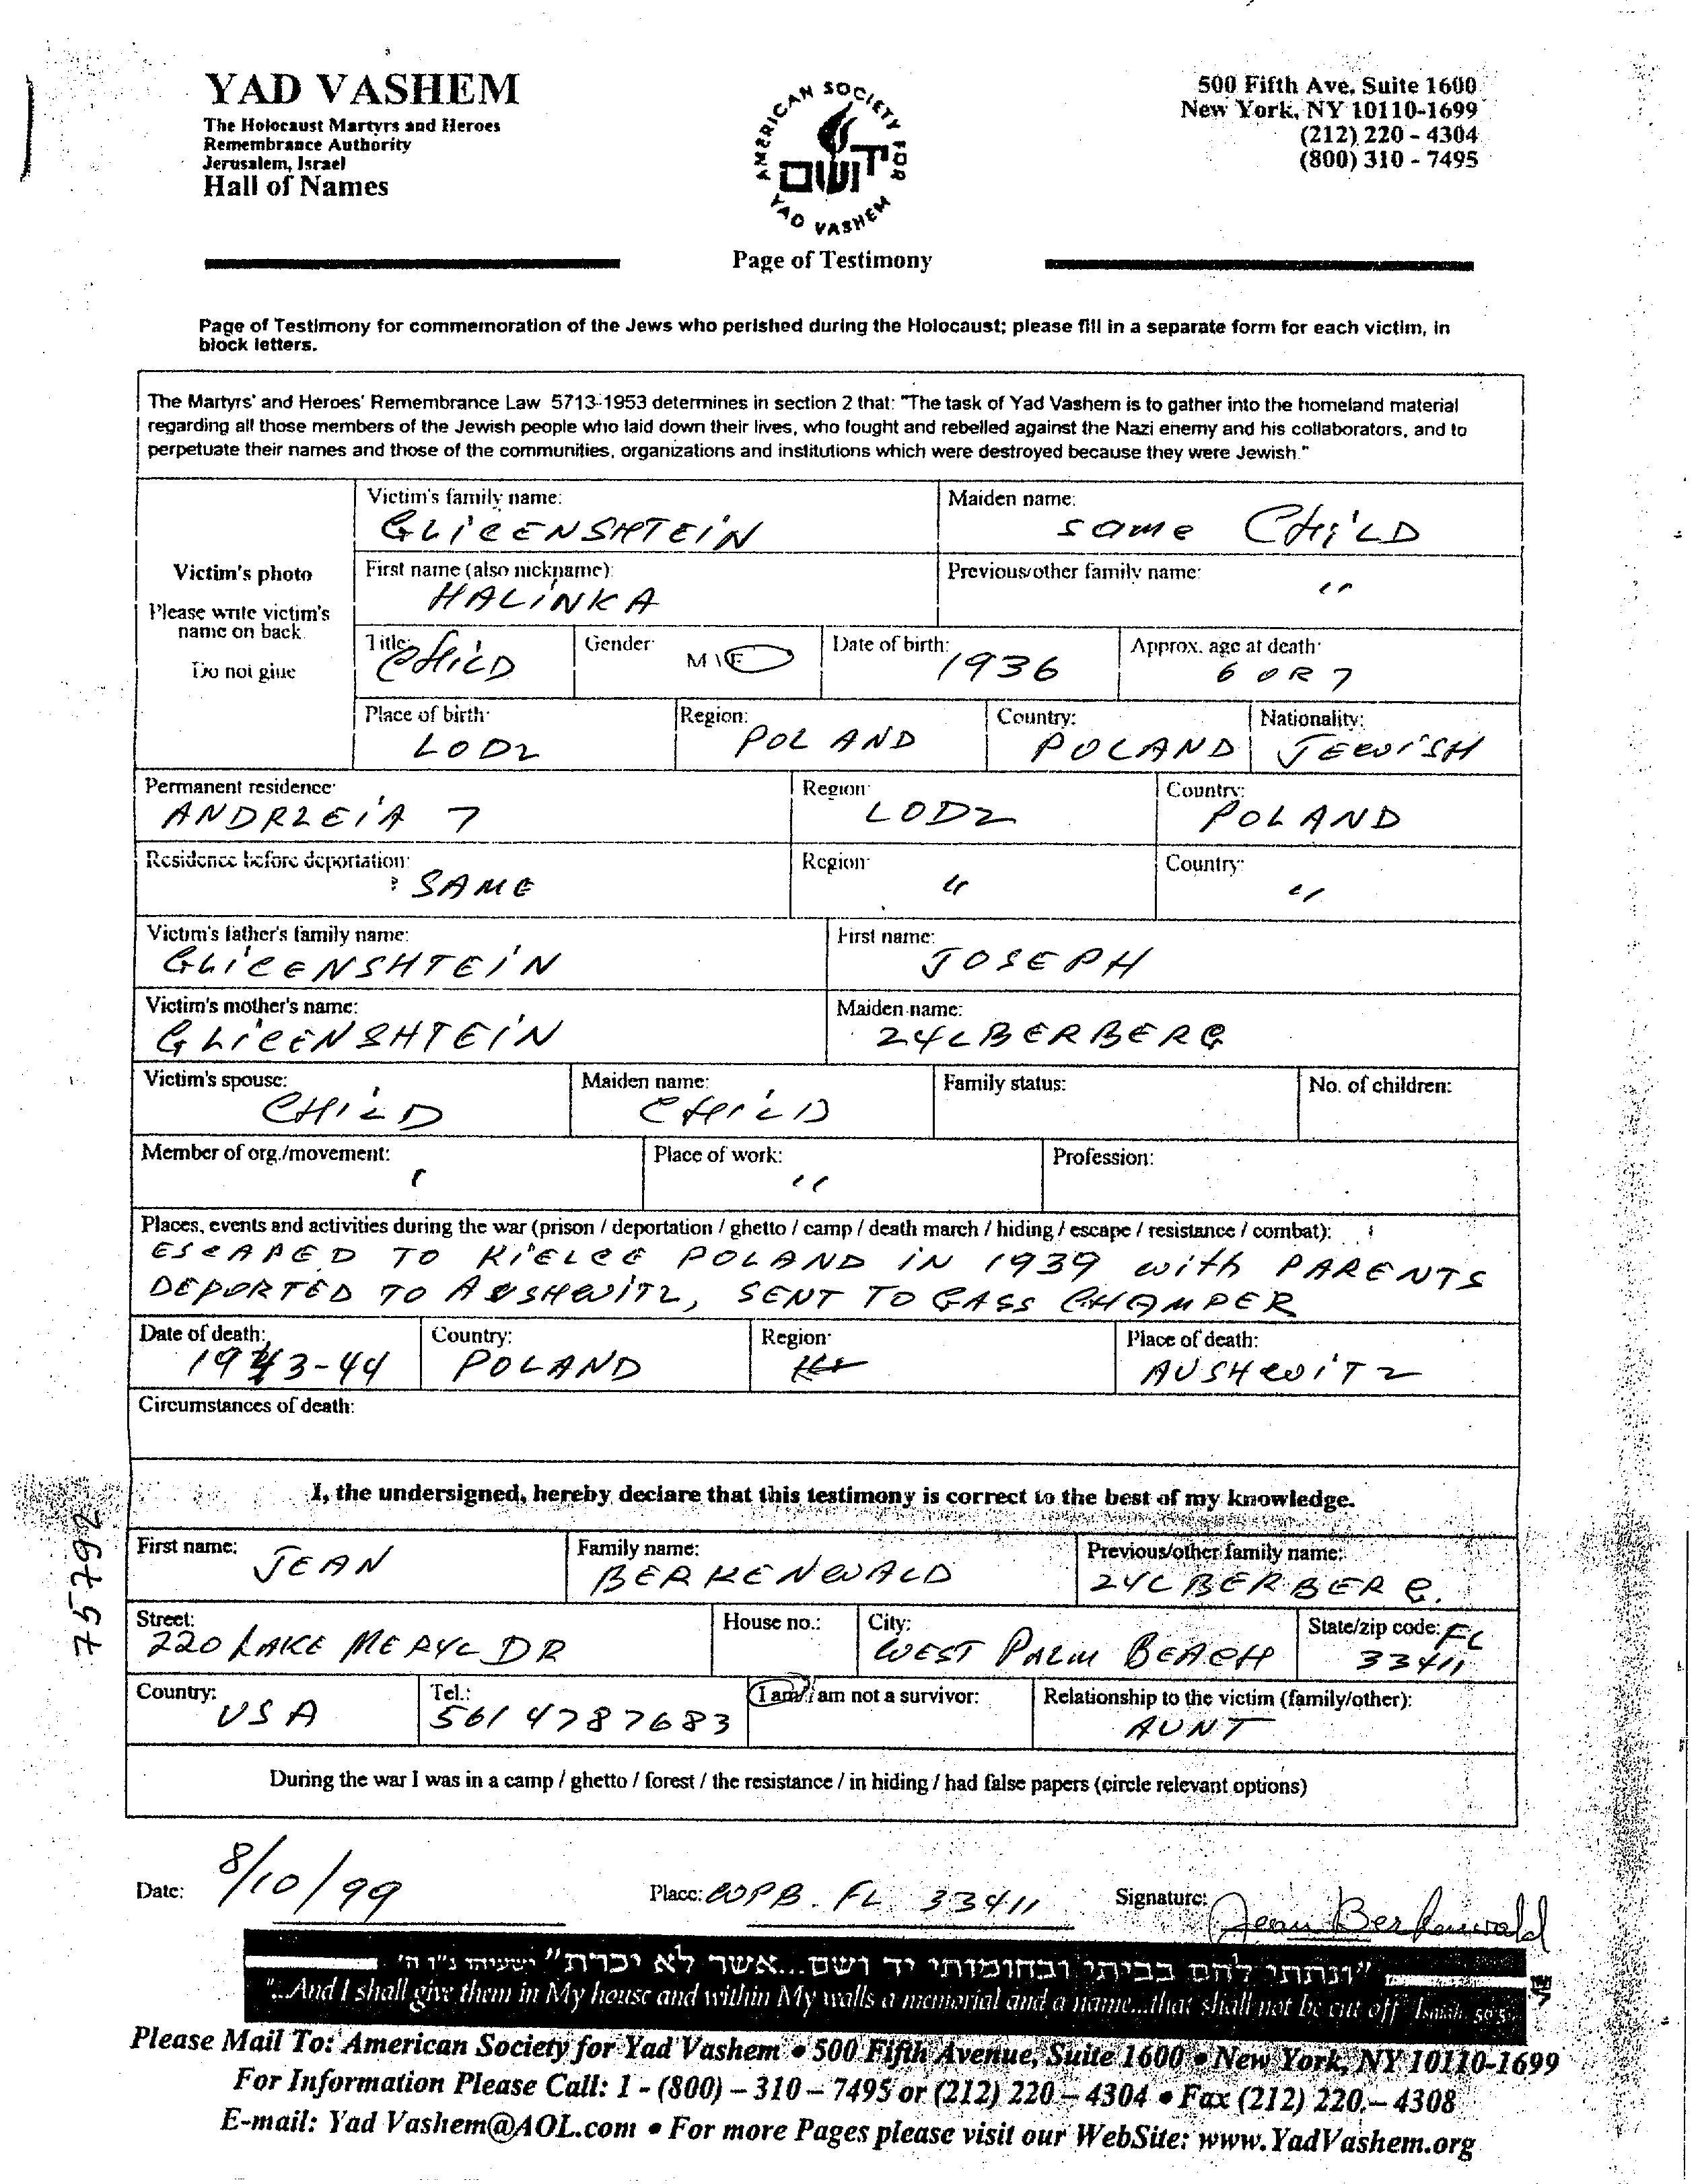 YAD VASHEM
The Holocaust Martyrs and Heroes
Remembrance Authority
Jerusalem, Israel
Hall of Names
AMERICAN SOCIETY FOR
יד ושם
YAD VASHEM
Page of Testimony
500 Fifth Ave, Suite 1600
New York, NY 10110-1699
(212) 220 - 4304
(800) 310 - 7495
Page of Testimony for commemoration of the Jews who perished during the Holocaust; please fill in a separate form for each victim, in
block letters.
The Martyrs' and Heroes' Remembrance Law 5713-1953 determines in section 2 that: "The task of Yad Vashem is to gather into the homeland material
regarding all those members of the Jewish people who laid down their lives, who fought and rebelled against the Nazi enemy and his collaborators, and to
perpetuate their names and those of the communities, organizations and institutions which were destroyed because they were Jewish."
Victim's photo
Please write victim's
name on back.
Do not glue
Victim's family name: GLICENSHTEIN
Maiden name: same CHILD
First name (also nickname): HALINKA
Previous/other family name: "
Title: CHILD
Gender: M \ F
Date of birth: 1936
Approx. age at death: 6 OR 7
Place of birth: LODZ
Region: POLAND
Country: POLAND
Nationality: JEWISH
Permanent residence: ANDRZEIA 7
Region: LODZ
Country: POLAND
Residence before deportation: SAME
Region: "
Country: "
Victim's father's family name: GLICENSHTEIN
First name: JOSEPH
Victim's mother's name: GLICENSHTEIN
Maiden name: ZYLBERBERG
Victim's spouse: CHILD
Maiden name: CHILD
Family status:
No. of children:
Member of org./movement:
Place of work: "
Profession:
Places, events and activities during the war (prison / deportation / ghetto / camp / death march / hiding / escape / resistance / combat):
ESCAPED TO KIELCE POLAND IN 1939 with PARENTS
DEPORTED TO AUSHWITZ, SENT TO GASS CHAMPER
Date of death: 1943-44
Country: POLAND
Region:
Place of death: AUSHWITZ
Circumstances of death:
I, the undersigned, hereby declare that this testimony is correct to the best of my knowledge.
First name: JEAN
Family name: BERKENWALD
Previous/other family name: ZYLBERBERG.
Street: 220 LAKE MERYL DR
House no.:
City: WEST PALM BEACH
State/zip code: FL 33411
Country: USA
Tel.: 561 4787683
I am/I am not a survivor:
Relationship to the victim (family/other): AUNT
During the war I was in a camp / ghetto / forest / the resistance / in hiding / had false papers (circle relevant options)
Date: 8/10/99
Place: WPB. FL 33411
Signature: Jean Berkenwald
"ונתתי להם בביתי ובחומותי יד ושם...אשר לא יכרת" ישעיהו נ"ו ה'
"...And I shall give them in My house and within My walls a memorial and a name...that shall not be cut off" Isaiah, 56:5
Please Mail To: American Society for Yad Vashem • 500 Fifth Avenue, Suite 1600 • New York, NY 10110-1699
For Information Please Call: 1 - (800) – 310 – 7495 or (212) 220 – 4304 • Fax (212) 220 – 4308
E-mail: Yad Vashem@AOL.com • For more Pages please visit our WebSite: www.YadVashem.org
75792